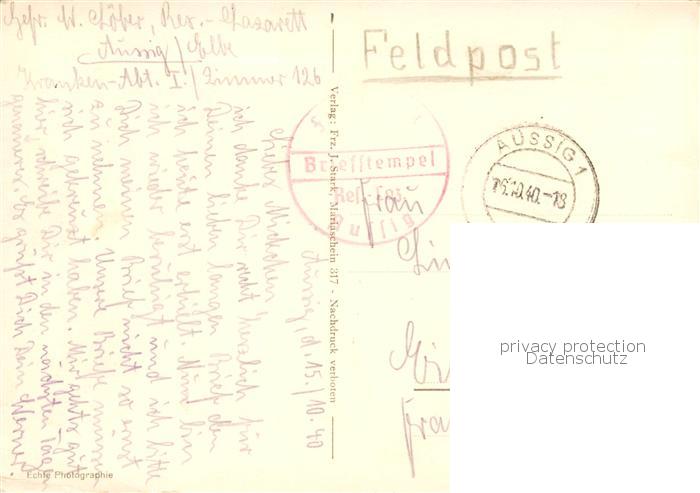 Gefr. W. Löber, Res.-Lazarett
Aussig/Elbe
Kranken-Abt. I./Zimmer 126
Aussig, d. 15./10.40
Liebes
ich danke Dir recht herzlich für
Deinen lieben langen Brief den
ich heute erst erhielt. Nun bin
ich wieder beruhigt und ich bitte
Dich meinen Brief nicht so ernst
zu nehmen. Unsere Briefe müssen
sich gekreuzt haben. Mir gehts gut
hier schreibe Dir in den nächsten Tagen
genaueres. Es grüßt Dich Dein Werner
Echte Photographie
Verlag: Frz. J. Stark, Mariaschein 317 - Nachdruck verboten
Feldpost
Briefstempel
Res. Laz.
Aussig
AUSSIG 1
15.10.40.-18
Frau
Frau
privacy protection
Datenschutz